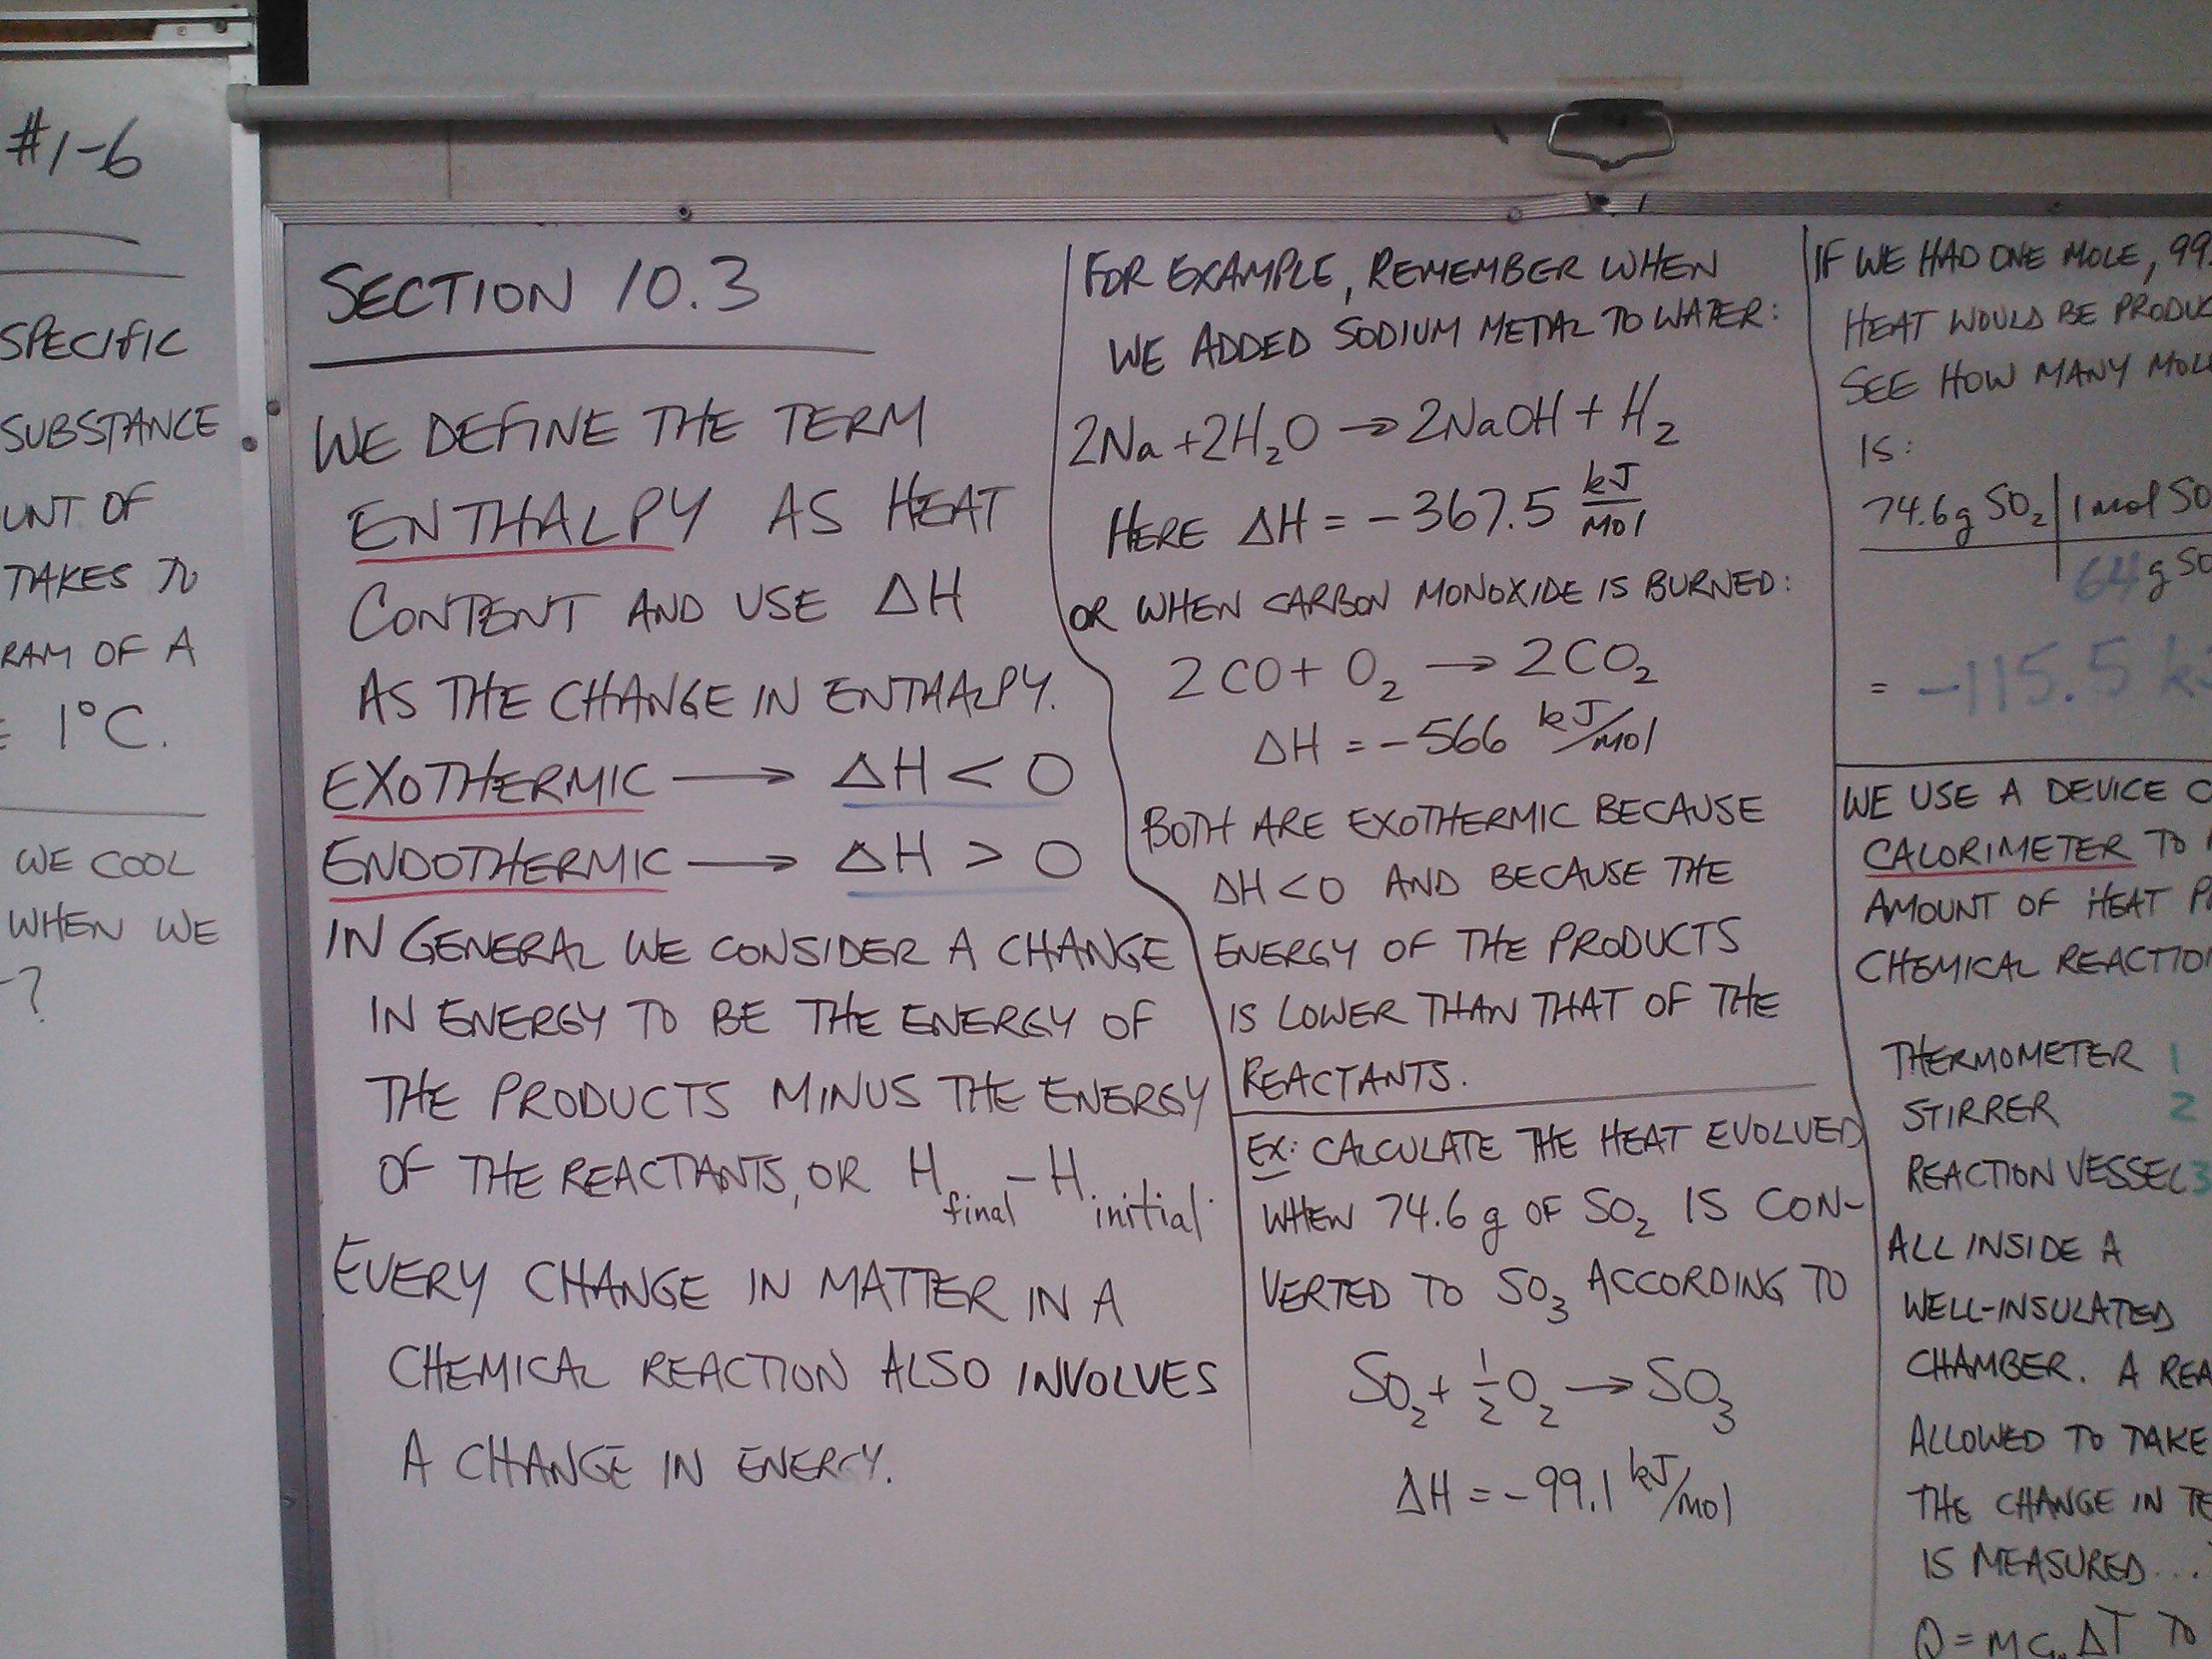 #1-6
SPECIFIC
SUBSTANCE
UNT OF
TAKES TO
RAM OF A
1°C.
WE COOL
WHEN WE
-?
SECTION 10.3
WE DEFINE THE TERM
ENTHALPY AS HEAT
CONTENT AND USE ΔH
AS THE CHANGE IN ENTHALPY.
EXOTHERMIC → ΔH < 0
ENDOTHERMIC → ΔH > 0
IN GENERAL WE CONSIDER A CHANGE
IN ENERGY TO BE THE ENERGY OF
THE PRODUCTS MINUS THE ENERGY
OF THE REACTANTS, OR H final - H initial.
EVERY CHANGE IN MATTER IN A
CHEMICAL REACTION ALSO INVOLVES
A CHANGE IN ENERGY.
FOR EXAMPLE, REMEMBER WHEN
WE ADDED SODIUM METAL TO WATER:
2Na + 2H₂O → 2NaOH + H₂
HERE ΔH = -367.5 kJ/mol
OR WHEN CARBON MONOXIDE IS BURNED:
2CO + O₂ → 2CO₂
ΔH = -566 kJ/mol
BOTH ARE EXOTHERMIC BECAUSE
ΔH<0 AND BECAUSE THE
ENERGY OF THE PRODUCTS
IS LOWER THAN THAT OF THE
REACTANTS.
EX: CALCULATE THE HEAT EVOLVED
WHEN 74.6 g OF SO₂ IS CON-
VERTED TO SO₃ ACCORDING TO
SO₂ + 1/2 O₂ → SO₃
ΔH = -99.1 kJ/mol
IF WE HAD ONE MOLE, 99.
HEAT WOULD BE PRODUC
SEE HOW MANY MOL
IS:
74.6g SO₂ | 1 mol SO
64 g SO
= -115.5 kJ
WE USE A DEVICE C
CALORIMETER TO
AMOUNT OF HEAT P
CHEMICAL REACTION
THERMOMETER 1
STIRRER 2
REACTION VESSEL 3
ALL INSIDE A
WELL-INSULATED
CHAMBER. A REA
ALLOWED TO TAKE
THE CHANGE IN TE
IS MEASURED...
Q = MCₚΔT TO